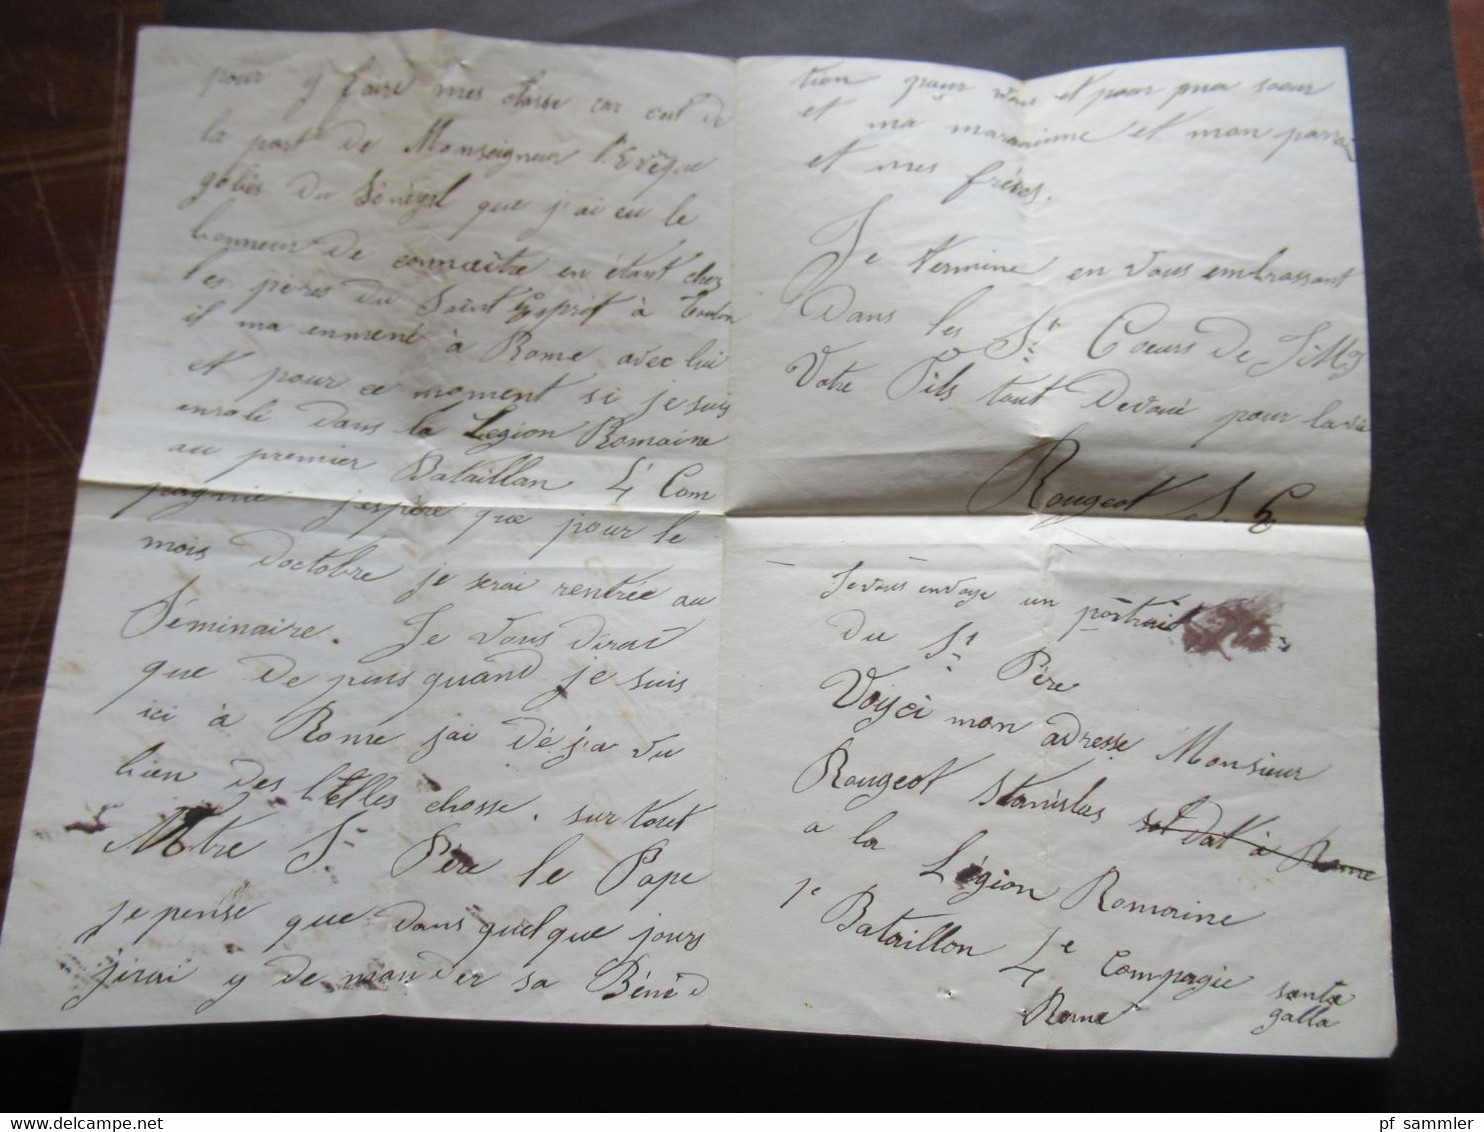 pour y faire mes classe car cest de
la part de Monseigneur l'Evêque
gobès du Sénégal que j'ai eu le
honneur de connaître en étant chez
les pères du Saint Esprit à Toulon
il ma enmené à Rome avec lui
et pour ce moment si je suis
enrolé dans la Légion Romaine
au premier Bataillon 4 Com
pagnie jespère que pour le
mois doctobre je serai rentrée au
Séminaire. Je vous dirai
que de puis quand je suis
ici à Rome jai déja vu
bien des belles chosse. surtout
Notre St Père le Pape
je pense que dans quelque jours
jirai y de mander sa Bénéd
tion pour vous et pour ma soeur
et ma marainne et mon parrain
et mes frères.
Je termine en vous embrassant
dans les St Coeurs de J. M. J
Votre Fils tout Devoué pour la vie
Rougeot S.
Je vous envoye un pörtrait
du St Père
Voyci mon adresse Monsieur
Rougeot Stanislas soldat à Rome
a la Légion Romaine
1e Bataillon 4e Compagie santa
Rome galla
pf sammler